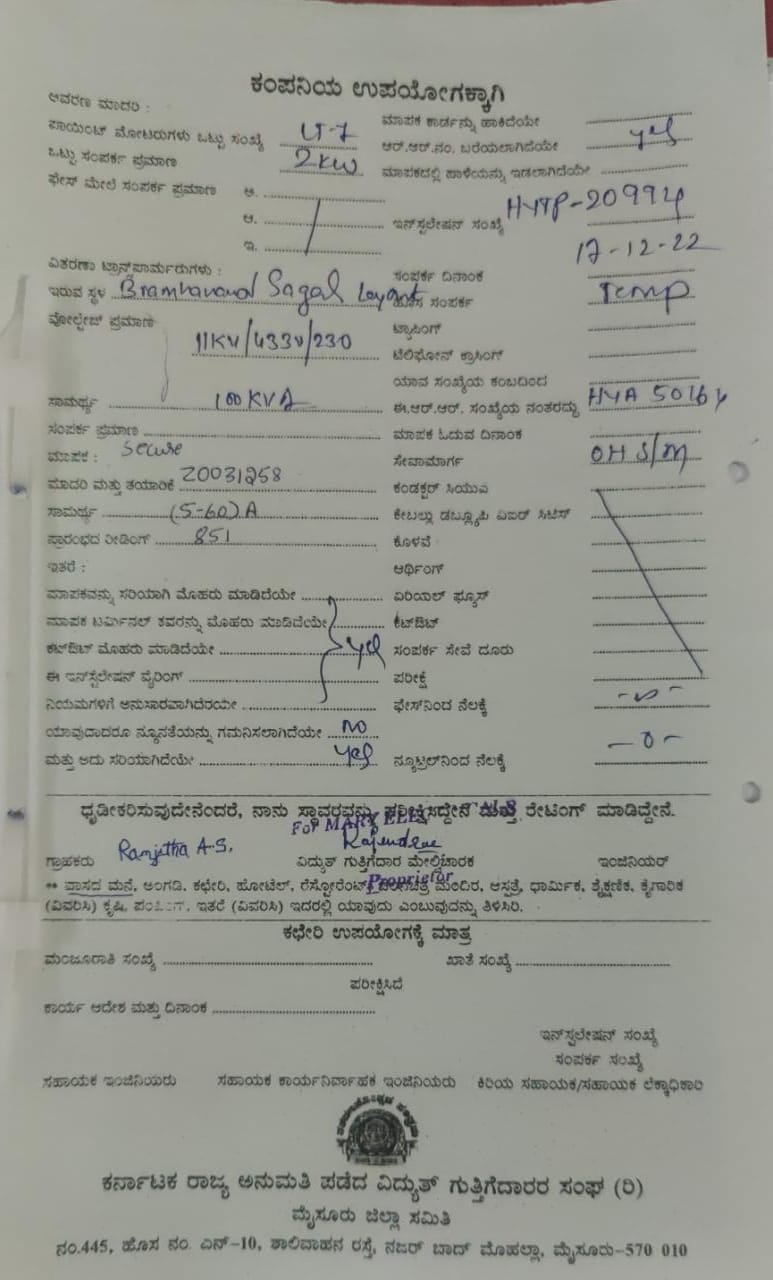 ಕಂಪನಿಯ ಉಪಯೋಗಕ್ಕಾಗಿ
ಆವರಣ ಮಾದರಿ :
ಮಾಪಕ ಕಾರ್ಡನ್ನು ಹಾಕಿದೆಯೇ
ಪಾಯಿಂಟ್ ಮೋಟರುಗಳು ಒಟ್ಟು ಸಂಖ್ಯೆ LT-7 ಆರ್.ಆರ್.ನಂ. ಬರೆಯಲಾಗಿದೆಯೇ yes
ಒಟ್ಟು ಸಂಪರ್ಕ ಪ್ರಮಾಣ 2KW ಮಾಪಕದಲ್ಲಿ ಹಾಳೆಯನ್ನು ಇಡಲಾಗಿದೆಯೇ
ಫೇಸ್ ಮೇಲೆ ಸಂಪರ್ಕ ಪ್ರಮಾಣ ಅ.
ಆ. ಇನ್‌ಸ್ಟಲೇಷನ್ ಸಂಖ್ಯೆ HYTP-20994
ಇ.
ವಿತರಣಾ ಟ್ರಾನ್ಸ್‌ಫಾರ್ಮರುಗಳು : ಸಂಪರ್ಕ ದಿನಾಂಕ 17-12-22
ಇರುವ ಸ್ಥಳ Bramhanand Sagal Layout ಹೊಸ ಸಂಪರ್ಕ Temp
ವೋಲ್ಟೇಜ್ ಪ್ರಮಾಣ 11KV/433V/230 ಟ್ರ್ಯಾಸಿಂಗ್
ಟೆಲಿಫೋನ್ ಕ್ರಾಸಿಂಗ್
ಯಾವ ಸಂಖ್ಯೆಯ ಕಂಬದಿಂದ
ಸಾಮರ್ಥ್ಯ 100KVA ಈ.ಆರ್.ಆರ್. ಸಂಖ್ಯೆಯ ನಂತರದ್ದು HYA 50164
ಸಂಪರ್ಕ ಪ್ರಮಾಣ ಮಾಪಕ ಓದುವ ದಿನಾಂಕ
ಮಾಪಕ : Secure ಸೇವಾಮಾರ್ಗ OH S/M
ಮಾದರಿ ಮತ್ತು ತಯಾರಿಕೆ 20031258 ಕಂಡಕ್ಟರ್ ಸಿಯುಎ
ಸಾಮರ್ಥ್ಯ (5-60)A ಕೇಬಲ್ಲು ಡಬ್ಲ್ಯೂಪಿ ಎಐರ್ ಸಿಟಿಸ್
ಪ್ರಾರಂಭದ ರೀಡಿಂಗ್ 851 ಕೊಳವೆ
ಇತರೆ : ಆರ್ಥಿಂಗ್
ಮಾಪಕವನ್ನು ಸರಿಯಾಗಿ ಮೊಹರು ಮಾಡಿದೆಯೇ ಏರಿಯಲ್ ಫ್ಯೂಸ್
ಮಾಪಕ ಟರ್ಮಿನಲ್ ಕವರನ್ನು ಮೊಹರು ಮಾಡಿದೆಯೇ ಕಟ್‌ಔಟ್
ಕಟ್‌ಔಟ್ ಮೊಹರು ಮಾಡಿದೆಯೇ yes ಸಂಪರ್ಕ ಸೇವೆ ದೂರು
ಈ ಇನ್‌ಸ್ಟಲೇಷನ್ ವೈರಿಂಗ್ ಪರೀಕ್ಷೆ
ನಿಯಮಗಳಿಗೆ ಅನುಸಾರವಾಗಿದೆರಯೇ ಫೇಸ್‌ನಿಂದ ನೆಲಕ್ಕೆ
ಯಾವುದಾದರೂ ನ್ಯೂನತೆಯನ್ನು ಗಮನಿಸಲಾಗಿದೆಯೇ NO
ಮತ್ತು ಅದು ಸರಿಯಾಗಿದೆಯೇ yes ನ್ಯೂಟ್ರಲ್‌ನಿಂದ ನೆಲಕ್ಕೆ -0-
ಧೃಡೀಕರಿಸುವುದೇನೆಂದರೆ, ನಾನು ಸ್ಥಾವರವನ್ನು ಪರೀಕ್ಷಿಸಿದ್ದೇನೆ ಮತ್ತು ರೇಟಿಂಗ್ ಮಾಡಿದ್ದೇನೆ.
For MARY
Ranjitha A.S. Rajendra
ಗ್ರಾಹಕರು ವಿದ್ಯುತ್ ಗುತ್ತಿಗೆದಾರ ಮೇಲ್ವಿಚಾರಕ ಇಂಜಿನಿಯರ್
Proprietor
** ವಾಸದ ಮನೆ, ಅಂಗಡಿ, ಕಛೇರಿ, ಹೋಟೆಲ್, ರೆಸ್ಟೋರೆಂಟ್, ಚಲನಚಿತ್ರ ಮಂದಿರ, ಆಸ್ಪತ್ರೆ, ಧಾರ್ಮಿಕ, ಶೈಕ್ಷಣಿಕ, ಕೈಗಾರಿಕ
(ವಿವರಿಸಿ) ಕೃಷಿ, ಪಂಪಿಂಗ್, ಇತರೆ (ವಿವರಿಸಿ) ಇದರಲ್ಲಿ ಯಾವುದು ಎಂಬುವುದನ್ನು ತಿಳಿಸಿರಿ.
ಕಛೇರಿ ಉಪಯೋಗಕ್ಕೆ ಮಾತ್ರ
ಮಂಜೂರಾತಿ ಸಂಖ್ಯೆ ಖಾತೆ ಸಂಖ್ಯೆ
ಪರೀಕ್ಷಿಸಿದೆ
ಕಾರ್ಯ ಆದೇಶ ಮತ್ತು ದಿನಾಂಕ
ಇನ್‌ಸ್ಟಲೇಷನ್ ಸಂಖ್ಯೆ
ಸಂಪರ್ಕ ಸಂಖ್ಯೆ
ಸಹಾಯಕ ಇಂಜಿನಿಯರು ಸಹಾಯಕ ಕಾರ್ಯನಿರ್ವಾಹಕ ಇಂಜಿನಿಯರು ಕಿರಿಯ ಸಹಾಯಕ/ಸಹಾಯಕ ಲೆಕ್ಕಾಧಿಕಾರಿ
ಕರ್ನಾಟಕ ರಾಜ್ಯ ಅನುಮತಿ ಪಡೆದ ವಿದ್ಯುತ್ ಗುತ್ತಿಗೆದಾರರ ಸಂಘ (ರಿ)
ಮೈಸೂರು ಜಿಲ್ಲಾ ಸಮಿತಿ
ನಂ.445, ಹೊಸ ನಂ. ಎನ್-10, ಶಾಲಿವಾಹನ ರಸ್ತೆ, ನಜರ್ ಬಾದ್ ಮೊಹಲ್ಲಾ, ಮೈಸೂರು-570 010